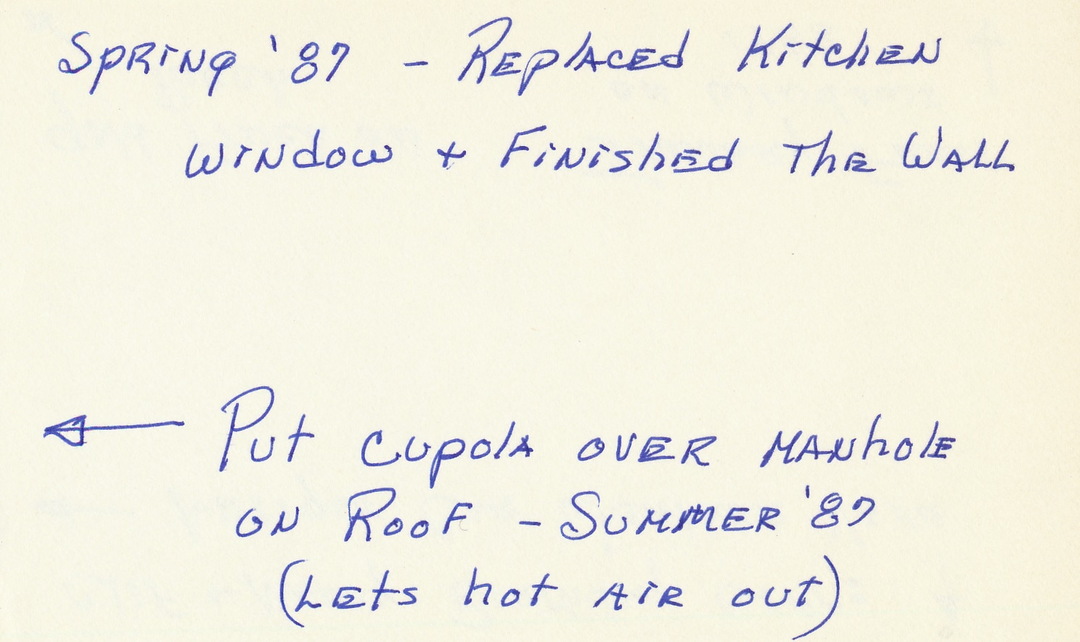 Spring '87 - Replaced Kitchen
Window + Finished The Wall
Put cupola over manhole
on Roof - Summer '87
(Lets hot air out)